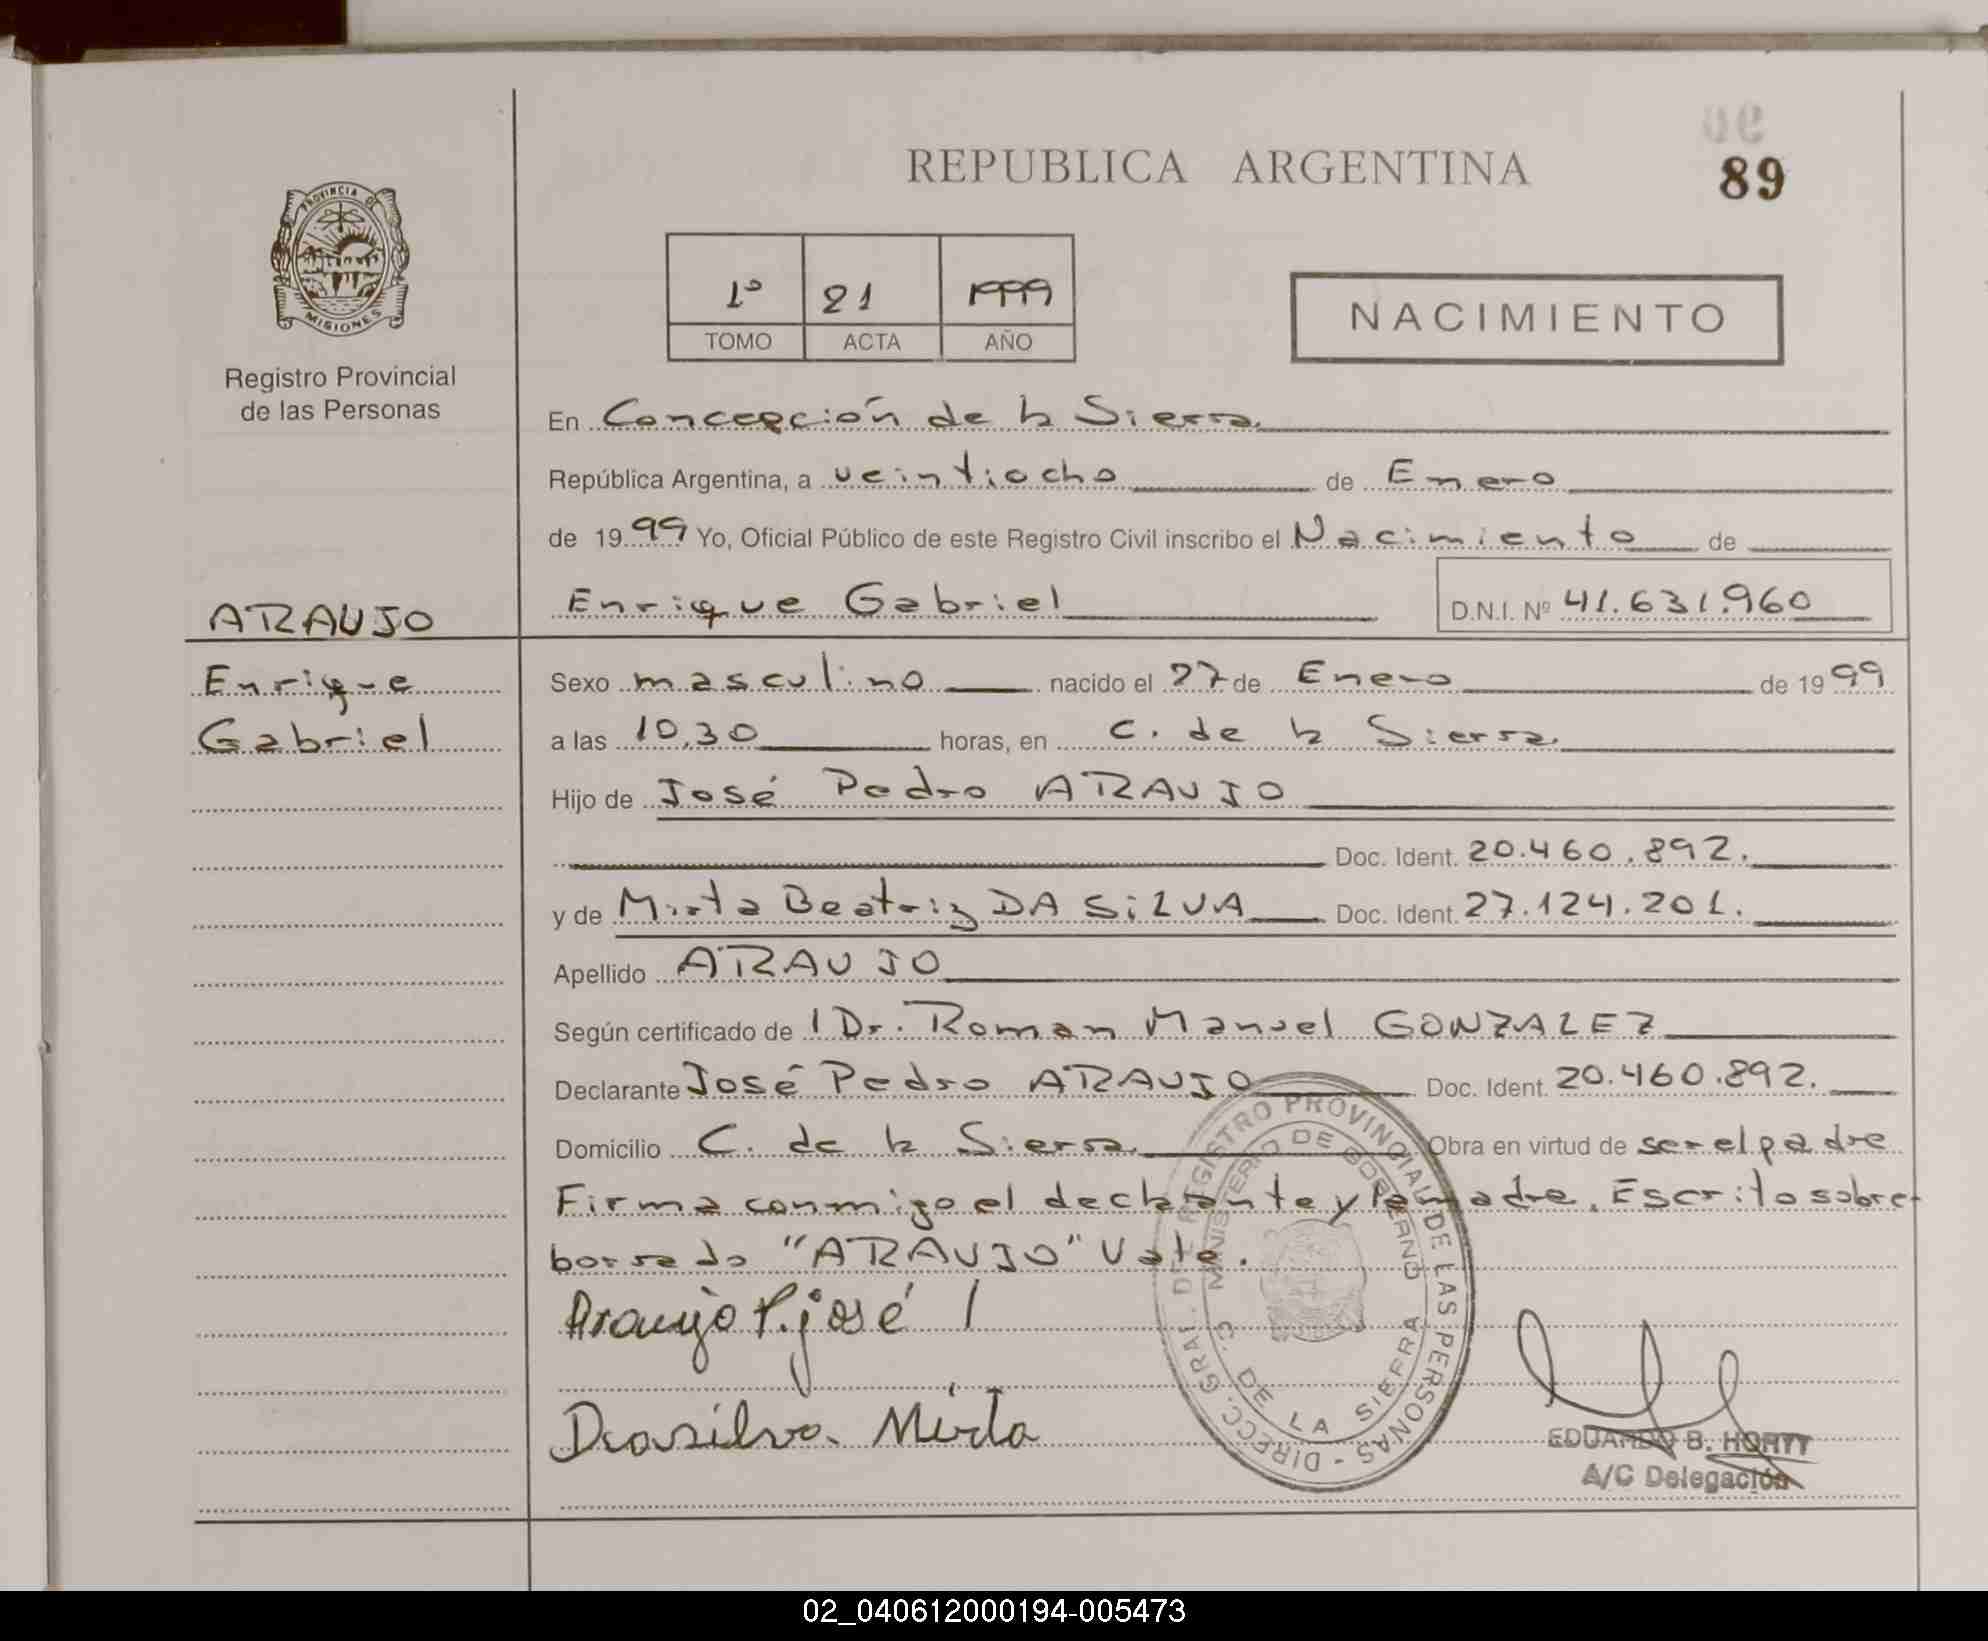 90
REPUBLICA ARGENTINA
89
PROVINCIA DE
MISIONES
Registro Provincial
de las Personas
1º 21 1999
TOMO ACTA AÑO
NACIMIENTO
En Concepción de la Sierra
República Argentina, a veintiocho de Enero
de 1999 Yo, Oficial Público de este Registro Civil inscribo el Nacimiento de
ARAUJO
Enrique Gabriel D.N.I. Nº 41.631.960
Enrique
Gabriel
Sexo masculino nacido el 27 de Enero de 1999
a las 10,30 horas, en C. de la Sierra
Hijo de José Pedro ARAUJO
Doc. Ident. 20.460.892.
y de Mirta Beatriz DA SiLVA Doc. Ident. 27.124.201.
Apellido ARAUJO
Según certificado de l Dr. Roman Manuel GONZALEZ
Declarante José Pedro ARAUJO Doc. Ident. 20.460.892.
Domicilio C. de la Sierra Obra en virtud de ser el padre
Firma conmigo el declarante y la madre. Escrito sobre
borrado "ARAUJO" Vale.
Araujo P. josé
Dasilva. Mirta
DIRECC. GRAL. DEL REGISTRO PROVINCIAL DE LAS PERSONAS -
MINISTERIO DE GOBIERNO
C. DE LA SIERRA
EDUARDO B. HORTT
A/C Delegación
02_040612000194-005473